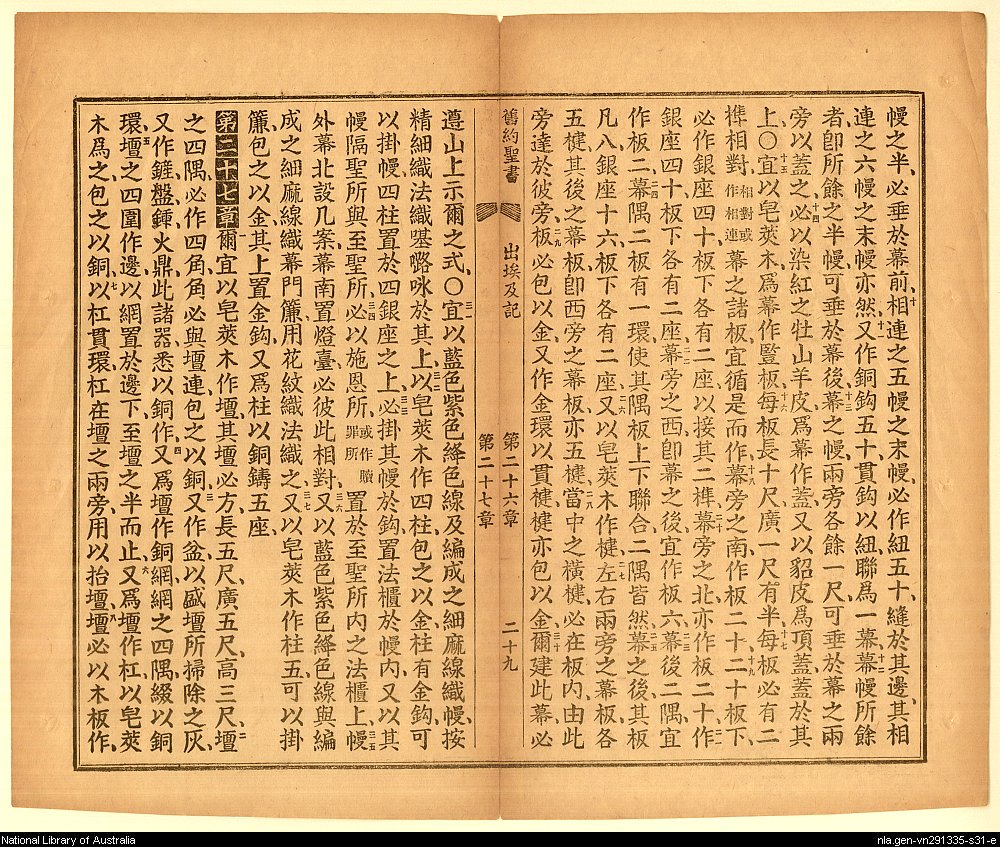 幔之半、必垂於幕前、十相連之五幔之末幔、必作紐五十、縫於其邊、其相
連之六幔之末幔亦然、十一又作銅鈎五十、貫鈎以紐、聯爲一幕、十二幕幔所餘
者、卽所餘之半幔、可垂於幕後、十三幕之幔、兩旁各餘一尺、可垂於幕之兩
旁以蓋之、十四必以染紅之牡山羊皮、爲幕作蓋、又以貂皮爲頂蓋、蓋於其
上、〇十五宜以皂莢木爲幕作豎板、十六每板長十尺、廣一尺有半、十七每板必有二
榫相對、相對或作相連幕之諸板、宜循是而作、十八幕旁之南、作板二十、十九二十板下、
必作銀座四十、板下各有二座、以接其二榫、二十幕旁之北、亦作板二十、二一作
銀座四十、板下各有二座、二二幕旁之西、卽幕之後、宜作板六、二三幕後二隅、宜
作板二、二四幕隅二板、有一環使其隅板上下聯合、二隅皆然、二五幕之後、其板
凡八、銀座十六、板下各有二座、二六又以皂莢木作楗、左右兩旁之幕板、二七各
五楗、其後之幕板、卽西旁之幕板、亦五楗、二八當中之橫楗、必在板內、由此
旁達於彼旁、二九板必包以金、又作金環以貫楗、楗亦包以金、三十爾建此幕、必
舊約聖書 出埃及記 第二十六章 二十九
第二十七章
遵山上示爾之式、〇三一宜以藍色紫色絳色線、及編成之細麻線織幔、按
精細織法織㗭嚕咏於其上、三二以皂莢木作四柱、包之以金、柱有金鈎、可
以掛幔、四柱置於四銀座之上、三三必掛其幔於鈎、置法櫃於幔內、又以其
幔隔聖所與至聖所、三四必以施恩所、或作贖罪所置於至聖所內之法櫃上、三五幔
外幕北設几案、幕南置燈臺、必彼此相對、三六又以藍色紫色絳色線、與編
成之細麻線、織幕門簾、用花紋織法織之、三七又以皂莢木作柱五、可以掛
簾、包之以金、其上置金鈎、又爲柱以銅鑄五座、
第二十七章一爾宜以皂莢木作壇、其壇必方、長五尺、廣五尺、高三尺、二壇
之四隅、必作四角、角必與壇連、包之以銅、三又作盆、以盛壇所掃除之灰、
又作鏟盤鍤火鼎、此諸器悉以銅作、四又爲壇作銅網、網之四隅、綴以銅
環、五壇之四圍作邊、以網置於邊下、至壇之半而止、六又爲壇作杠、以皂莢
木爲之、包之以銅、七以杠貫環、杠在壇之兩旁、用以抬壇、八壇必以木板作、
National Library of Australia
nla.gen-vn291335-s31-e